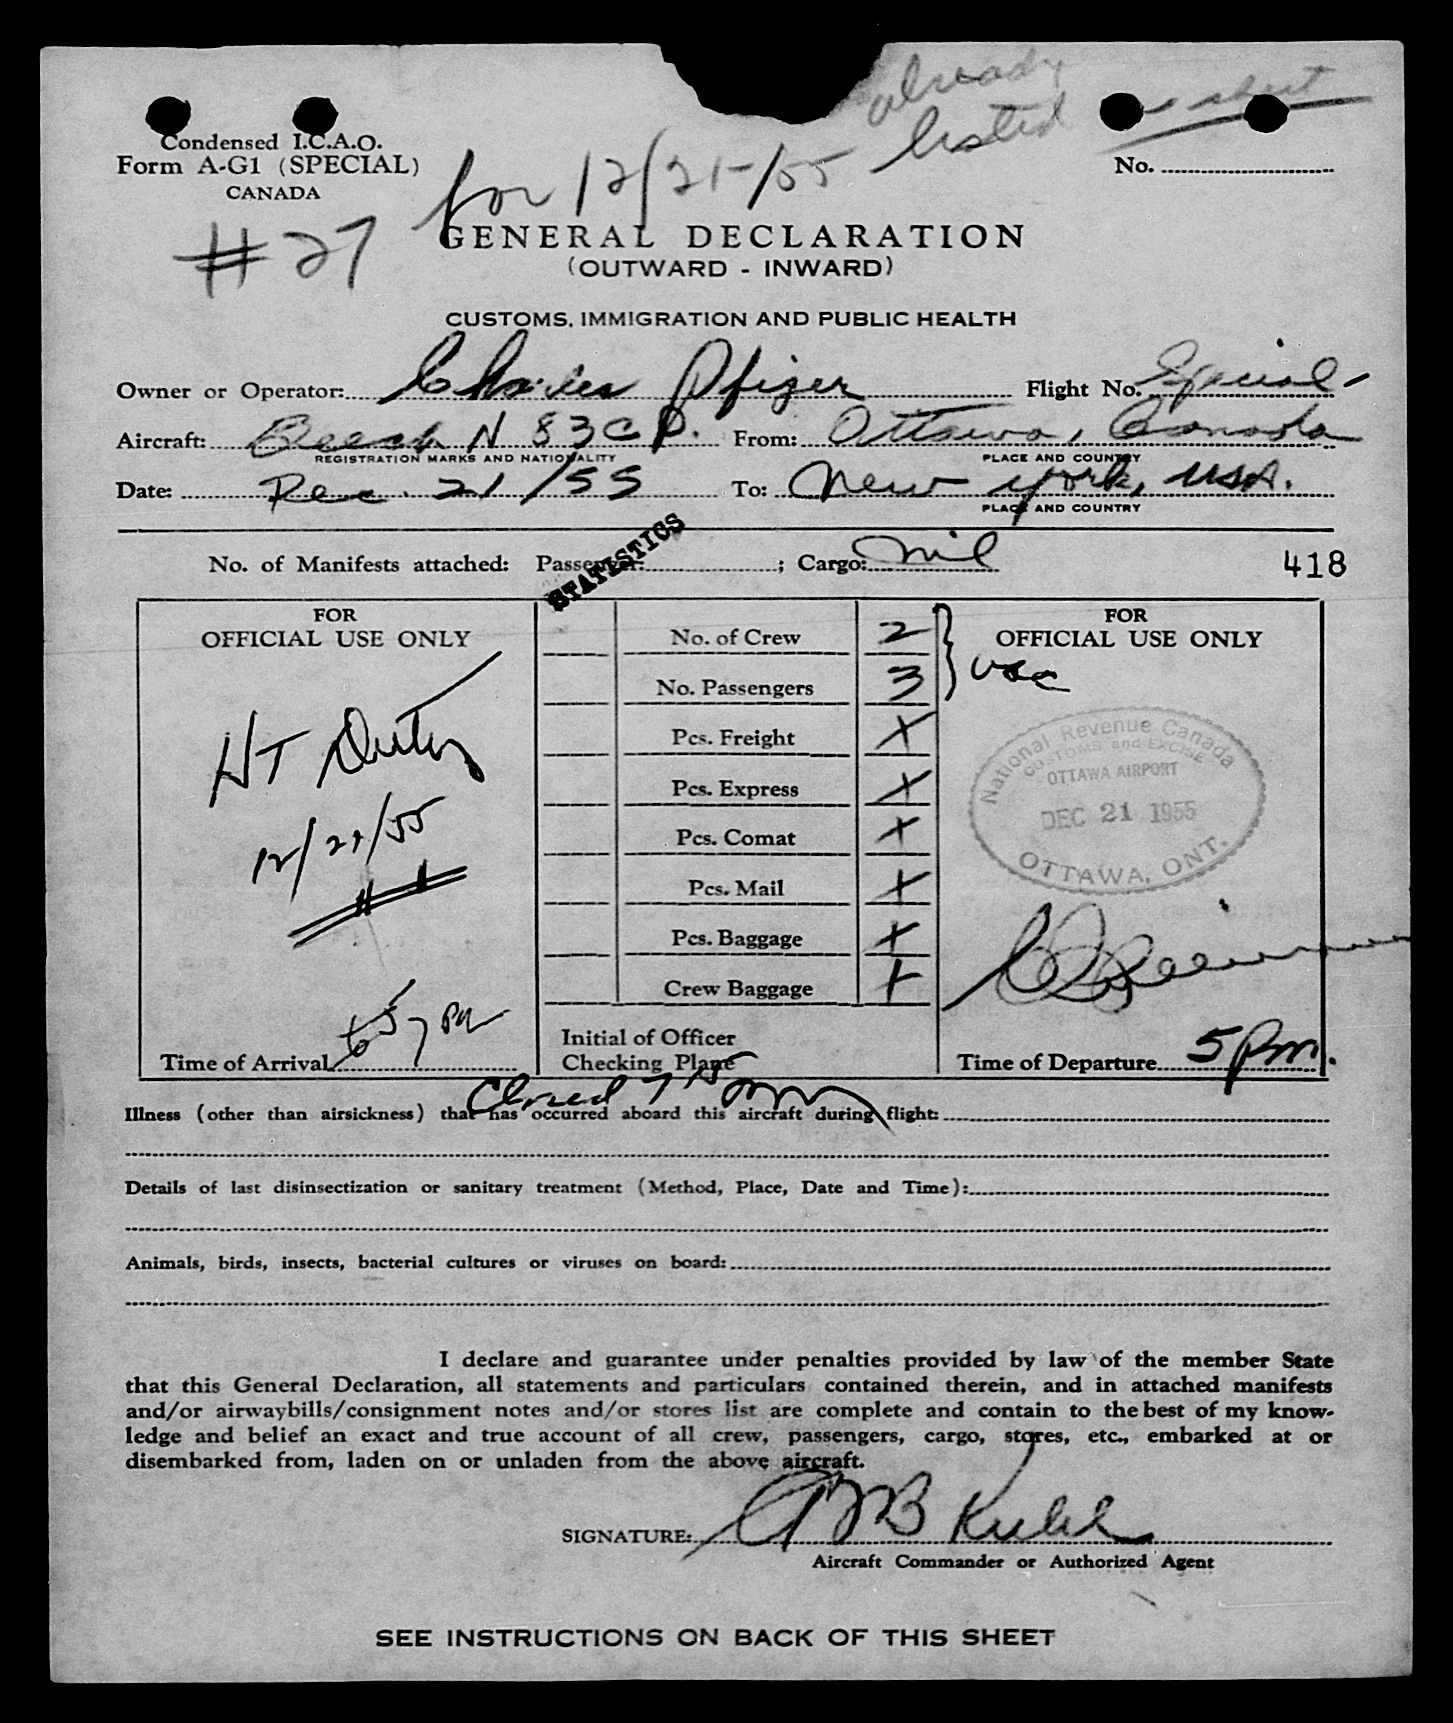 already
listed
sheet
Condensed I.C.A.O.
Form A-G1 (SPECIAL)
CANADA
No.
for 12/21/55
#27
GENERAL DECLARATION
(OUTWARD - INWARD)
CUSTOMS, IMMIGRATION AND PUBLIC HEALTH
Owner or Operator: Charles Pfizer Flight No. Special
Aircraft: Beech N 83CP. From: Ottawa, Canada
REGISTRATION MARKS AND NATIONALITY PLACE AND COUNTRY
Date: Dec. 21/55 To: New York, USA.
PLACE AND COUNTRY
STATISTICS
No. of Manifests attached: Passenger: ; Cargo: nil 418
FOR
OFFICIAL USE ONLY
HT Duty
12/21/55
7 PM
Time of Arrival
No. of Crew 2
No. Passengers 3
Pcs. Freight X
Pcs. Express X
Pcs. Comat X
Pcs. Mail X
Pcs. Baggage X
Crew Baggage X
Initial of Officer
Checking Plane
FOR
OFFICIAL USE ONLY
USC
National Revenue Canada
CUSTOMS and EXCISE
OTTAWA AIRPORT
DEC 21 1955
OTTAWA, ONT.
Time of Departure 5 Pm.
Closed 7 15
Illness (other than airsickness) that has occurred aboard this aircraft during flight:
Details of last disinsectization or sanitary treatment (Method, Place, Date and Time):
Animals, birds, insects, bacterial cultures or viruses on board:
I declare and guarantee under penalties provided by law of the member State
that this General Declaration, all statements and particulars contained therein, and in attached manifests
and/or airwaybills/consignment notes and/or stores list are complete and contain to the best of my know-
ledge and belief an exact and true account of all crew, passengers, cargo, stores, etc., embarked at or
disembarked from, laden on or unladen from the above aircraft.
SIGNATURE:
Aircraft Commander or Authorized Agent
SEE INSTRUCTIONS ON BACK OF THIS SHEET